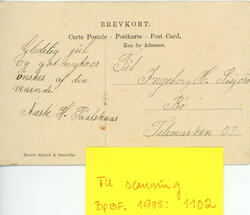 BREVKORT.
Carte Postale - Postkarte - Post Card.
Kun for Adressen.
Glædelig jul
Og got nytaar
önskes af din
veninde
Aaste H. Paalshaus
Til
Ingeborg H.
Bø
Telemarken
Til scanning
BØBF. 1985: 1102